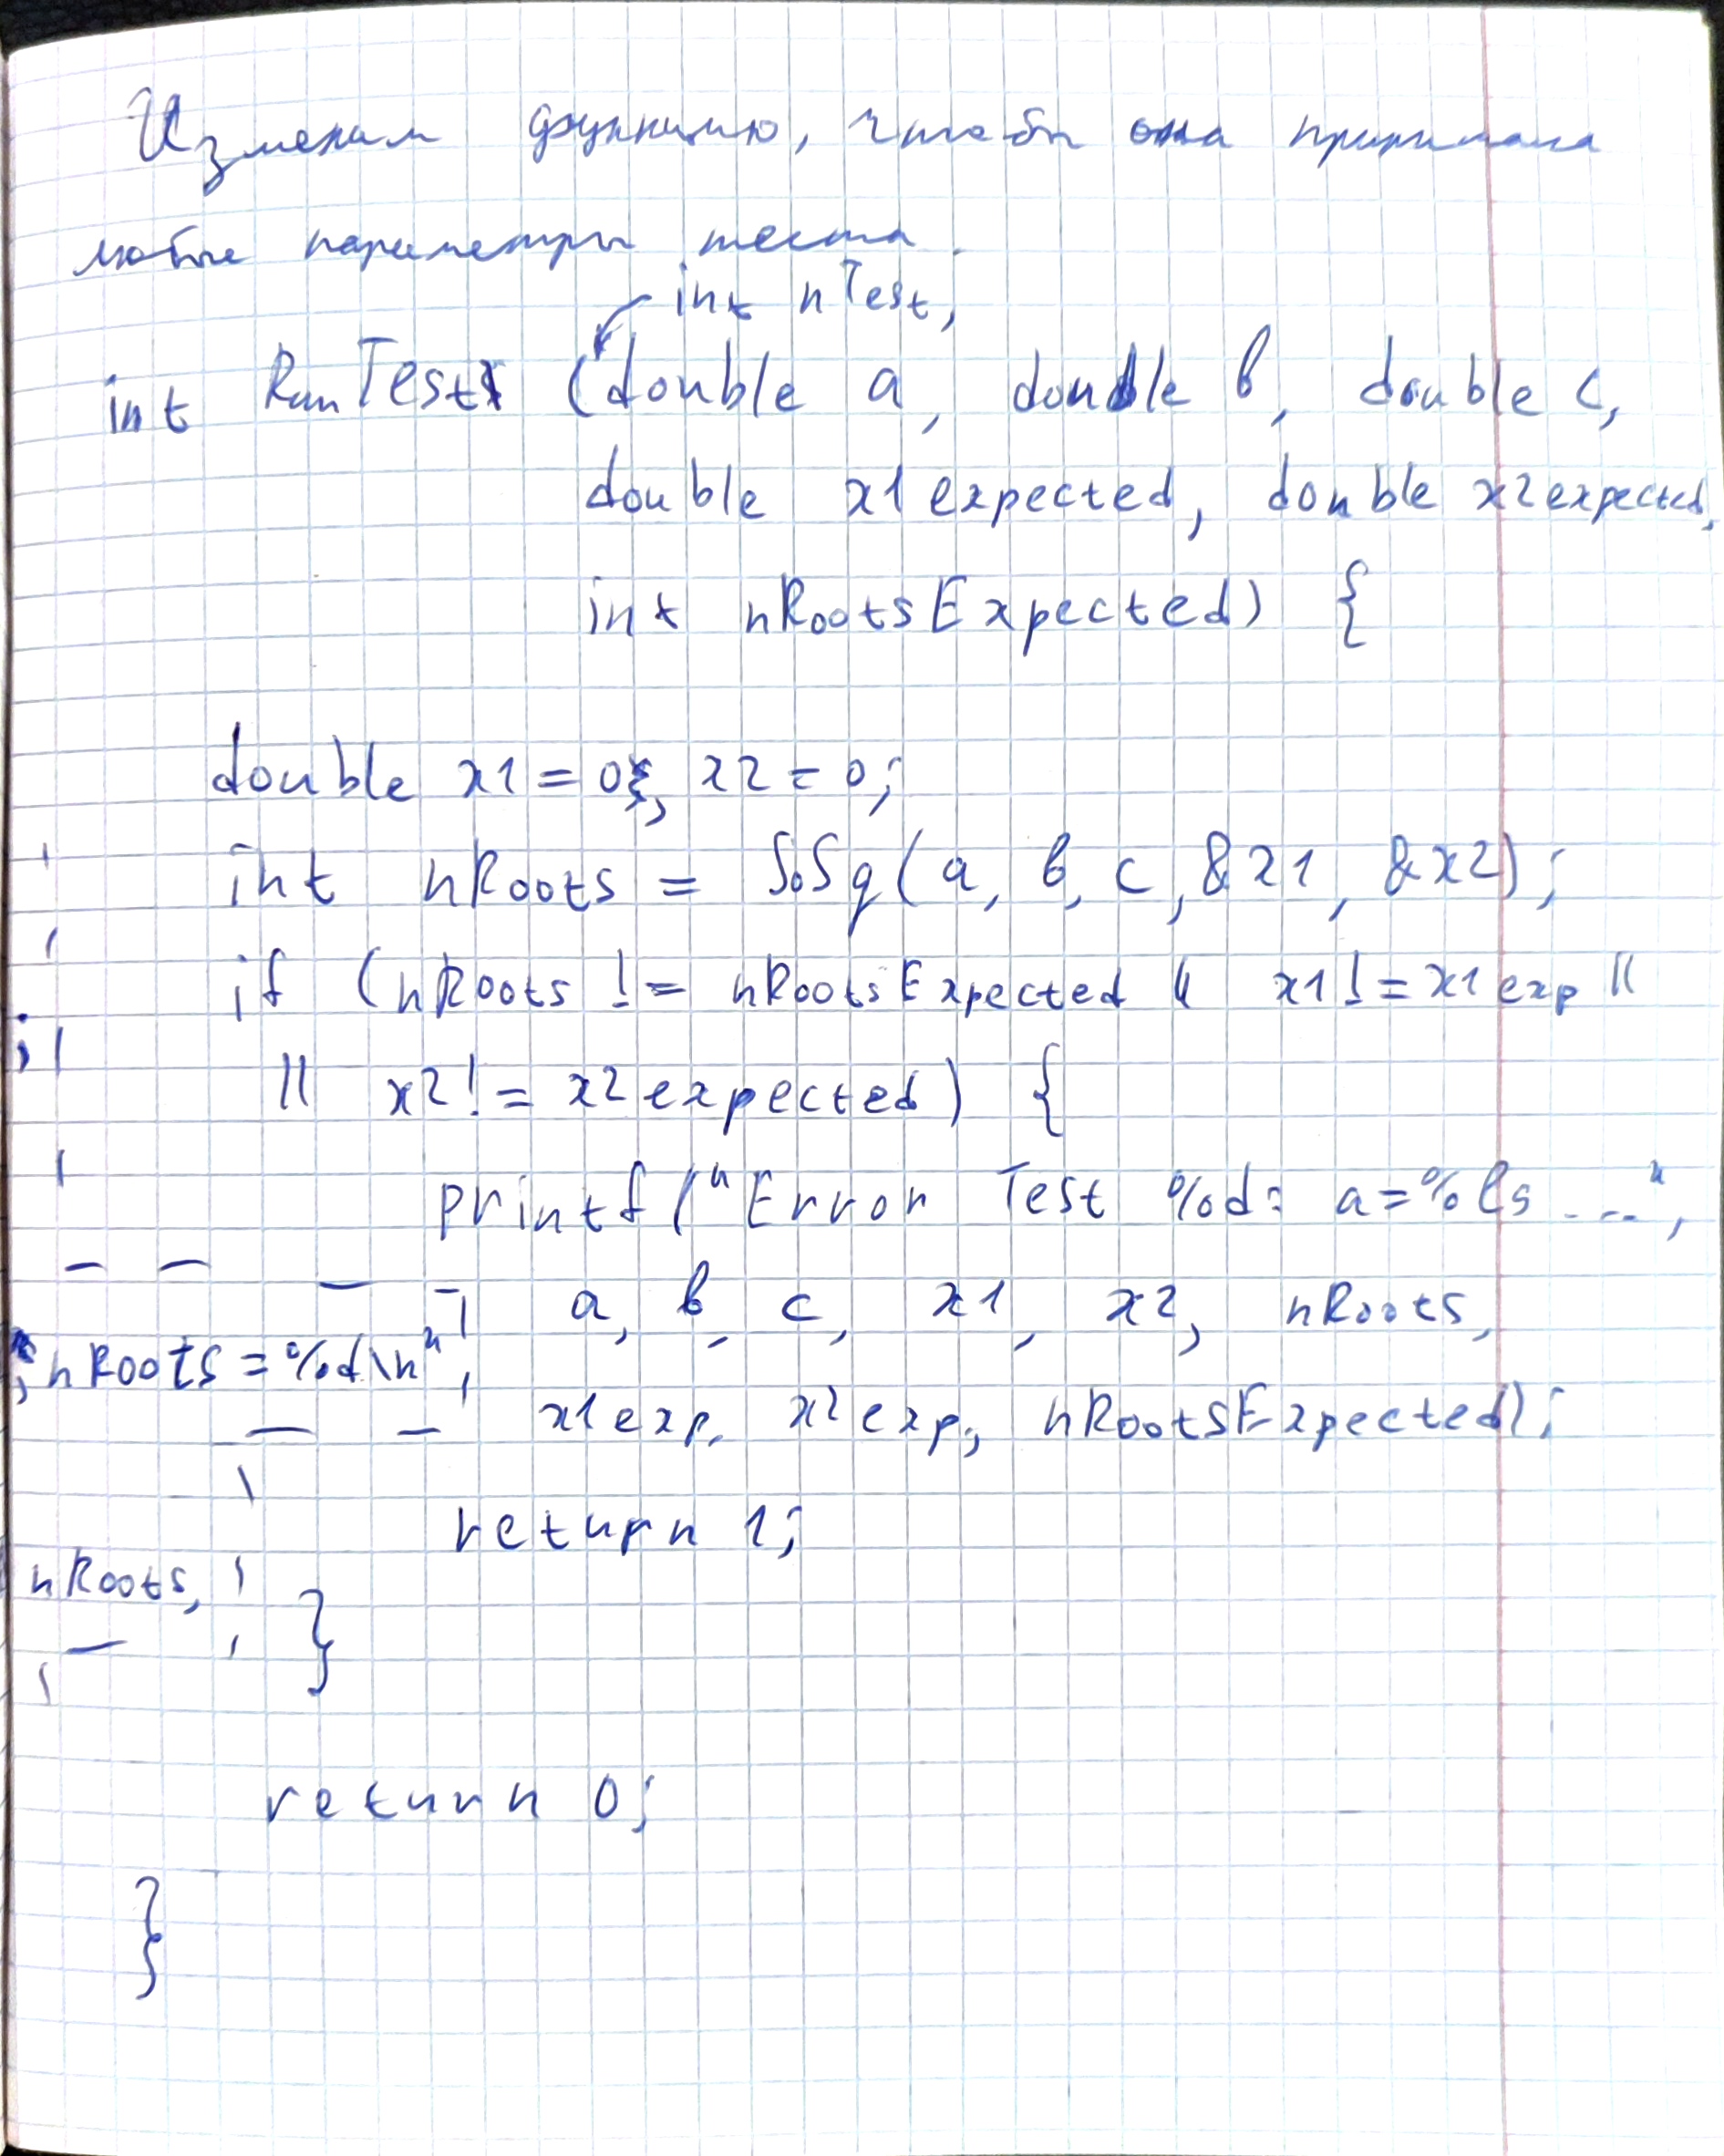 Изменим функцию, чтобы она принимала
любые параметры теста.
int nTest,
int RunTest (double a, double b, double c,
double x1expected, double x2expected,
int nRootsExpected) {
double x1 = 0, x2 = 0;
int nRoots = SoSq(a, b, c, &x1, &x2);
if (nRoots != nRootsExpected || x1 != x1exp ||
|| x2 != x2expected) {
printf("Error Test %d: a=%ls ...",
a, b, c, x1, x2, nRoots,
; nRoots = %d\n",
x1exp, x2exp., nRootsExpected);
return 1;
nRoots,
}
return 0;
}